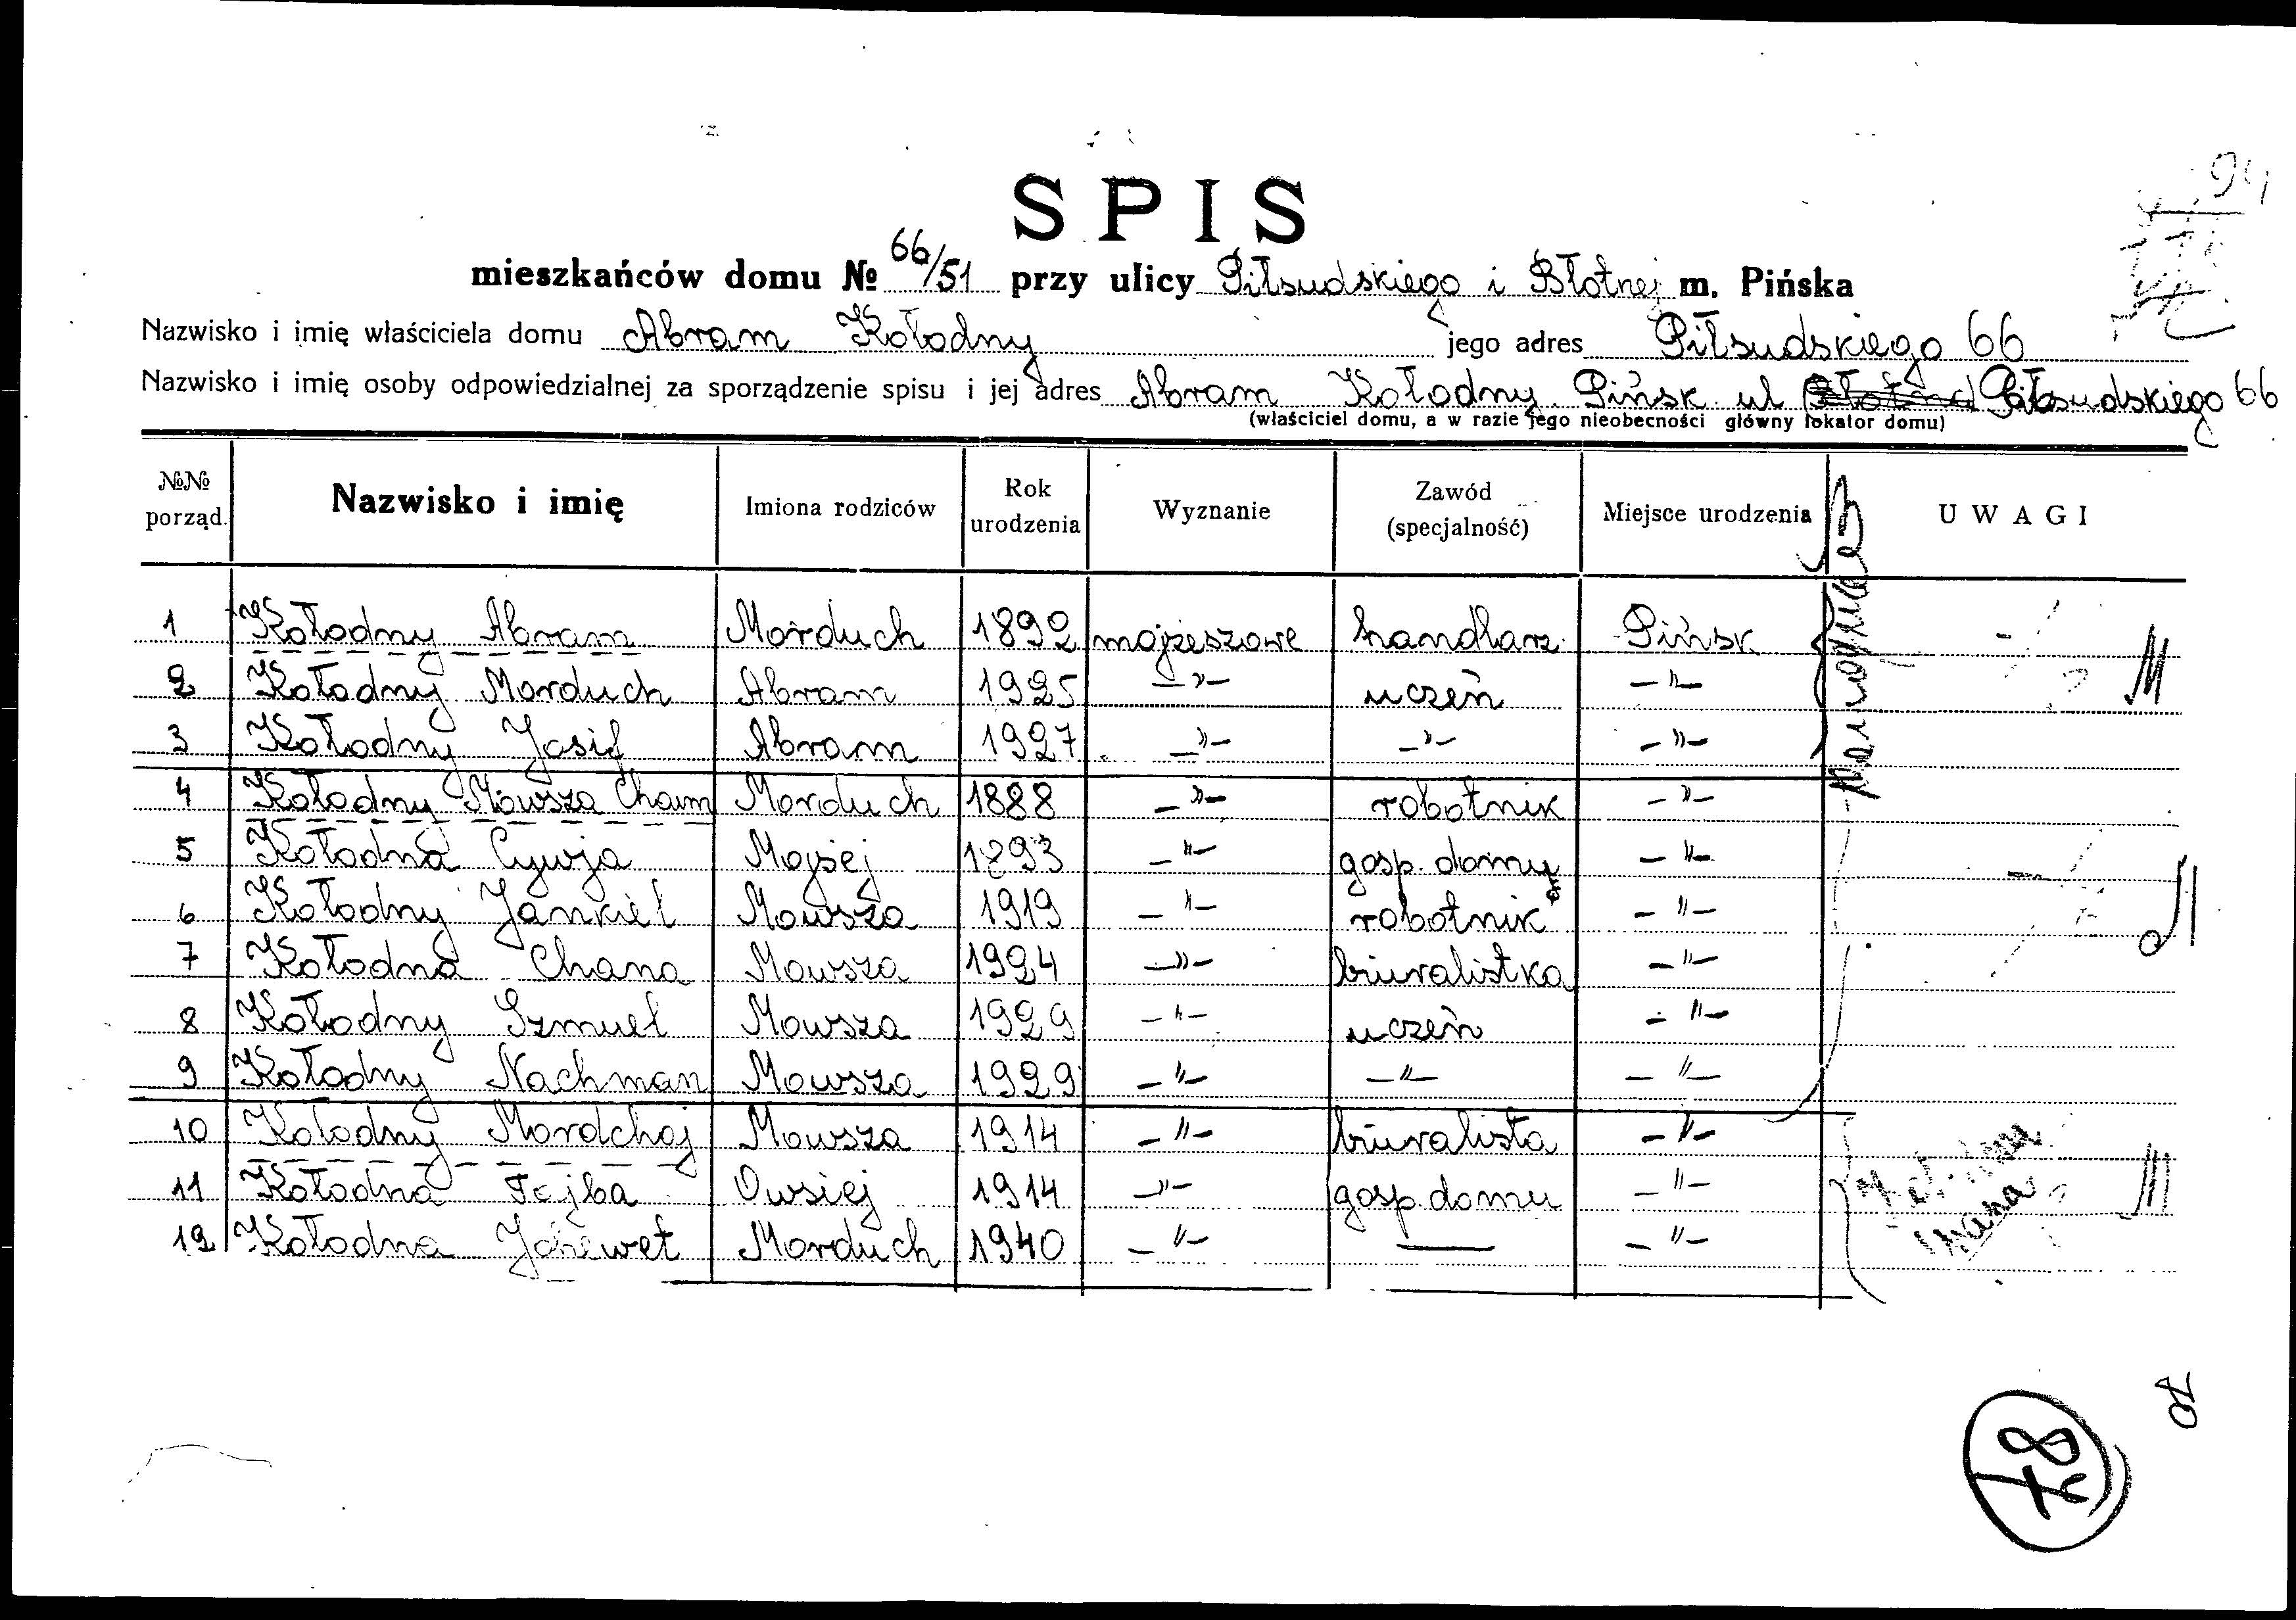 94
SPIS
mieszkańców domu № 66/51 przy ulicy Piłsudskiego i Błotnej m. Pińska
Nazwisko i imię właściciela domu Abram Kołodny jego adres Piłsudskiego 66
Nazwisko i imię osoby odpowiedzialnej za sporządzenie spisu i jej adres Abram Kołodny Pińsk ul Piłsudskiego 66
(właściciel domu, a w razie jego nieobecności główny lokator domu)
№№ porząd. Nazwisko i imię Imiona rodziców Rok urodzenia Wyznanie Zawód (specjalność) Miejsce urodzenia UWAGI
1 Kołodny Abram Morduch 1892 mojżeszowe handlarz Pińsk
2 Kołodny Morduch Abram 1925 -"- uczeń -"-
3 Kołodny Josif Abram 1927 -"- -"- -"-
4 Kołodny Mowsza Chaim Morduch 1888 -"- robotnik -"-
5 Kołodna Cywja Mojsiej 1893 -"- gosp. domu -"-
6 Kołodny Jankiel Mowsza 1919 -"- robotnik -"-
7 Kołodna Chana Mowsza 1924 -"- biuralistka -"-
8 Kołodny Szmuel Mowsza 1929 -"- uczeń -"-
9 Kołodny Nachman Mowsza 1929 -"- -"- -"-
10 Kołodny Mordchaj Mowsza 1914 -"- biuralista -"-
11 Kołodna Fejba Owsiej 1914 -"- gosp. domu -"-
12 Kołodna Morduch 1940 -"- — -"-
70
78